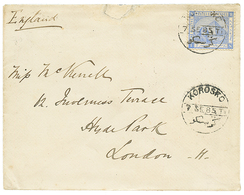 England
Miss McNeill
12 Inverness Terrace
Hyde Park
London W
KOROSKO
7 SE 85 T1